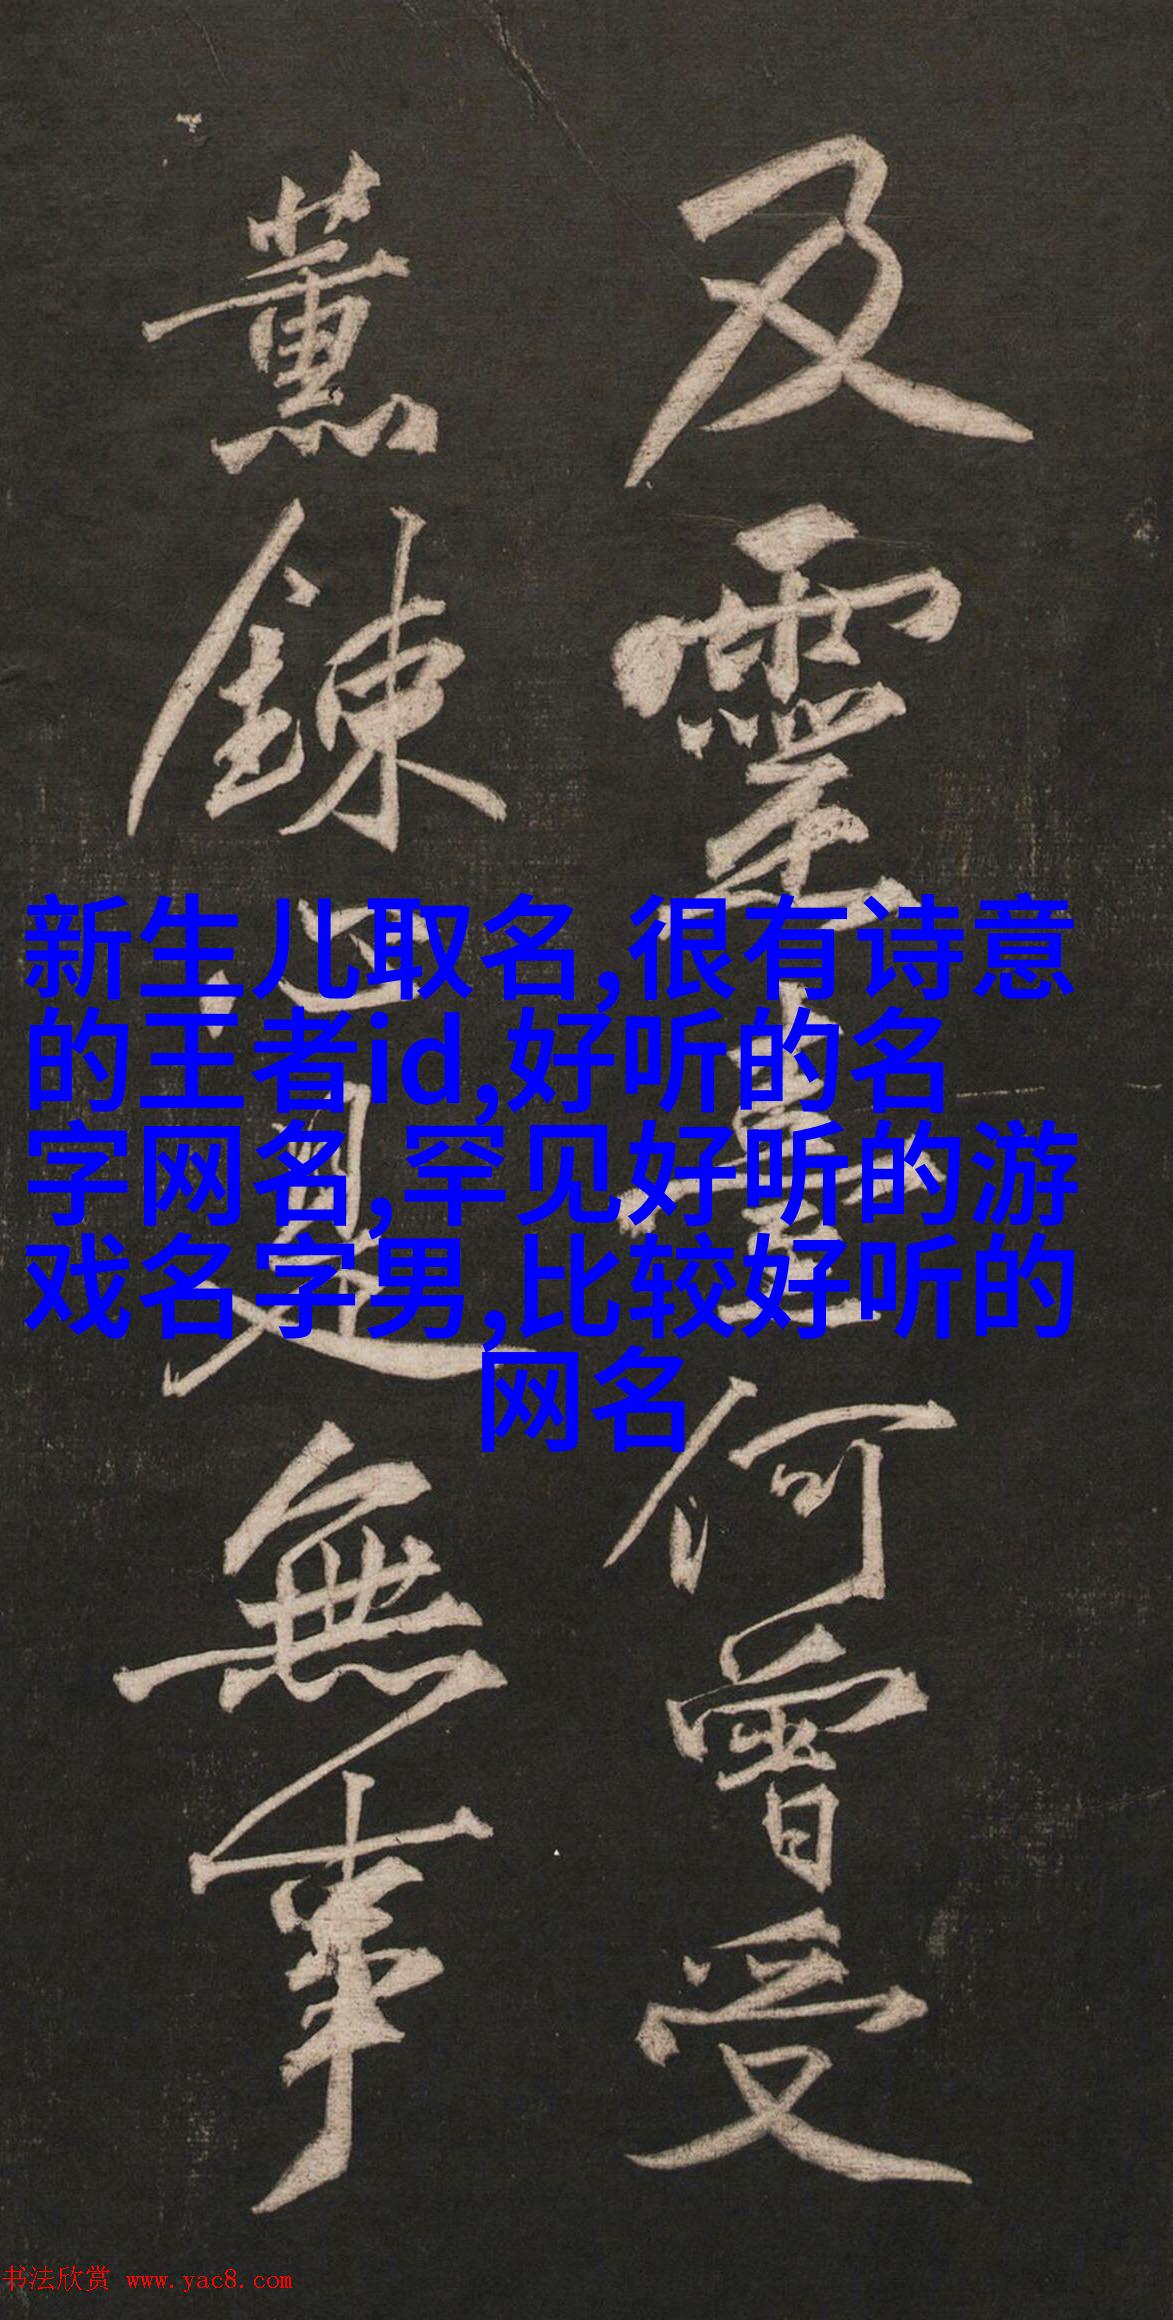 及靈臺何曾受
薰鍊心是無事
新生儿取名,很有诗意
的王者id,好听的名
字网名,罕见好听的游
戏名字男,比较好听的
网名
书法欣赏 www.yac8.com